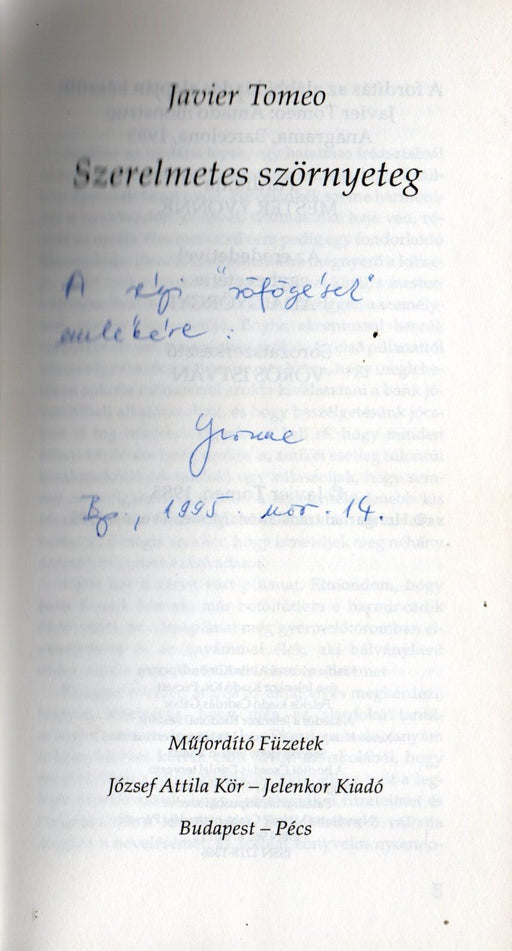 Javier Tomeo
Szerelmetes szörnyeteg
A régi "röfögések"
emlékére.
Yvonne
Bp., 1995. nov. 14.
Műfordító Füzetek
József Attila Kör – Jelenkor Kiadó
Budapest – Pécs